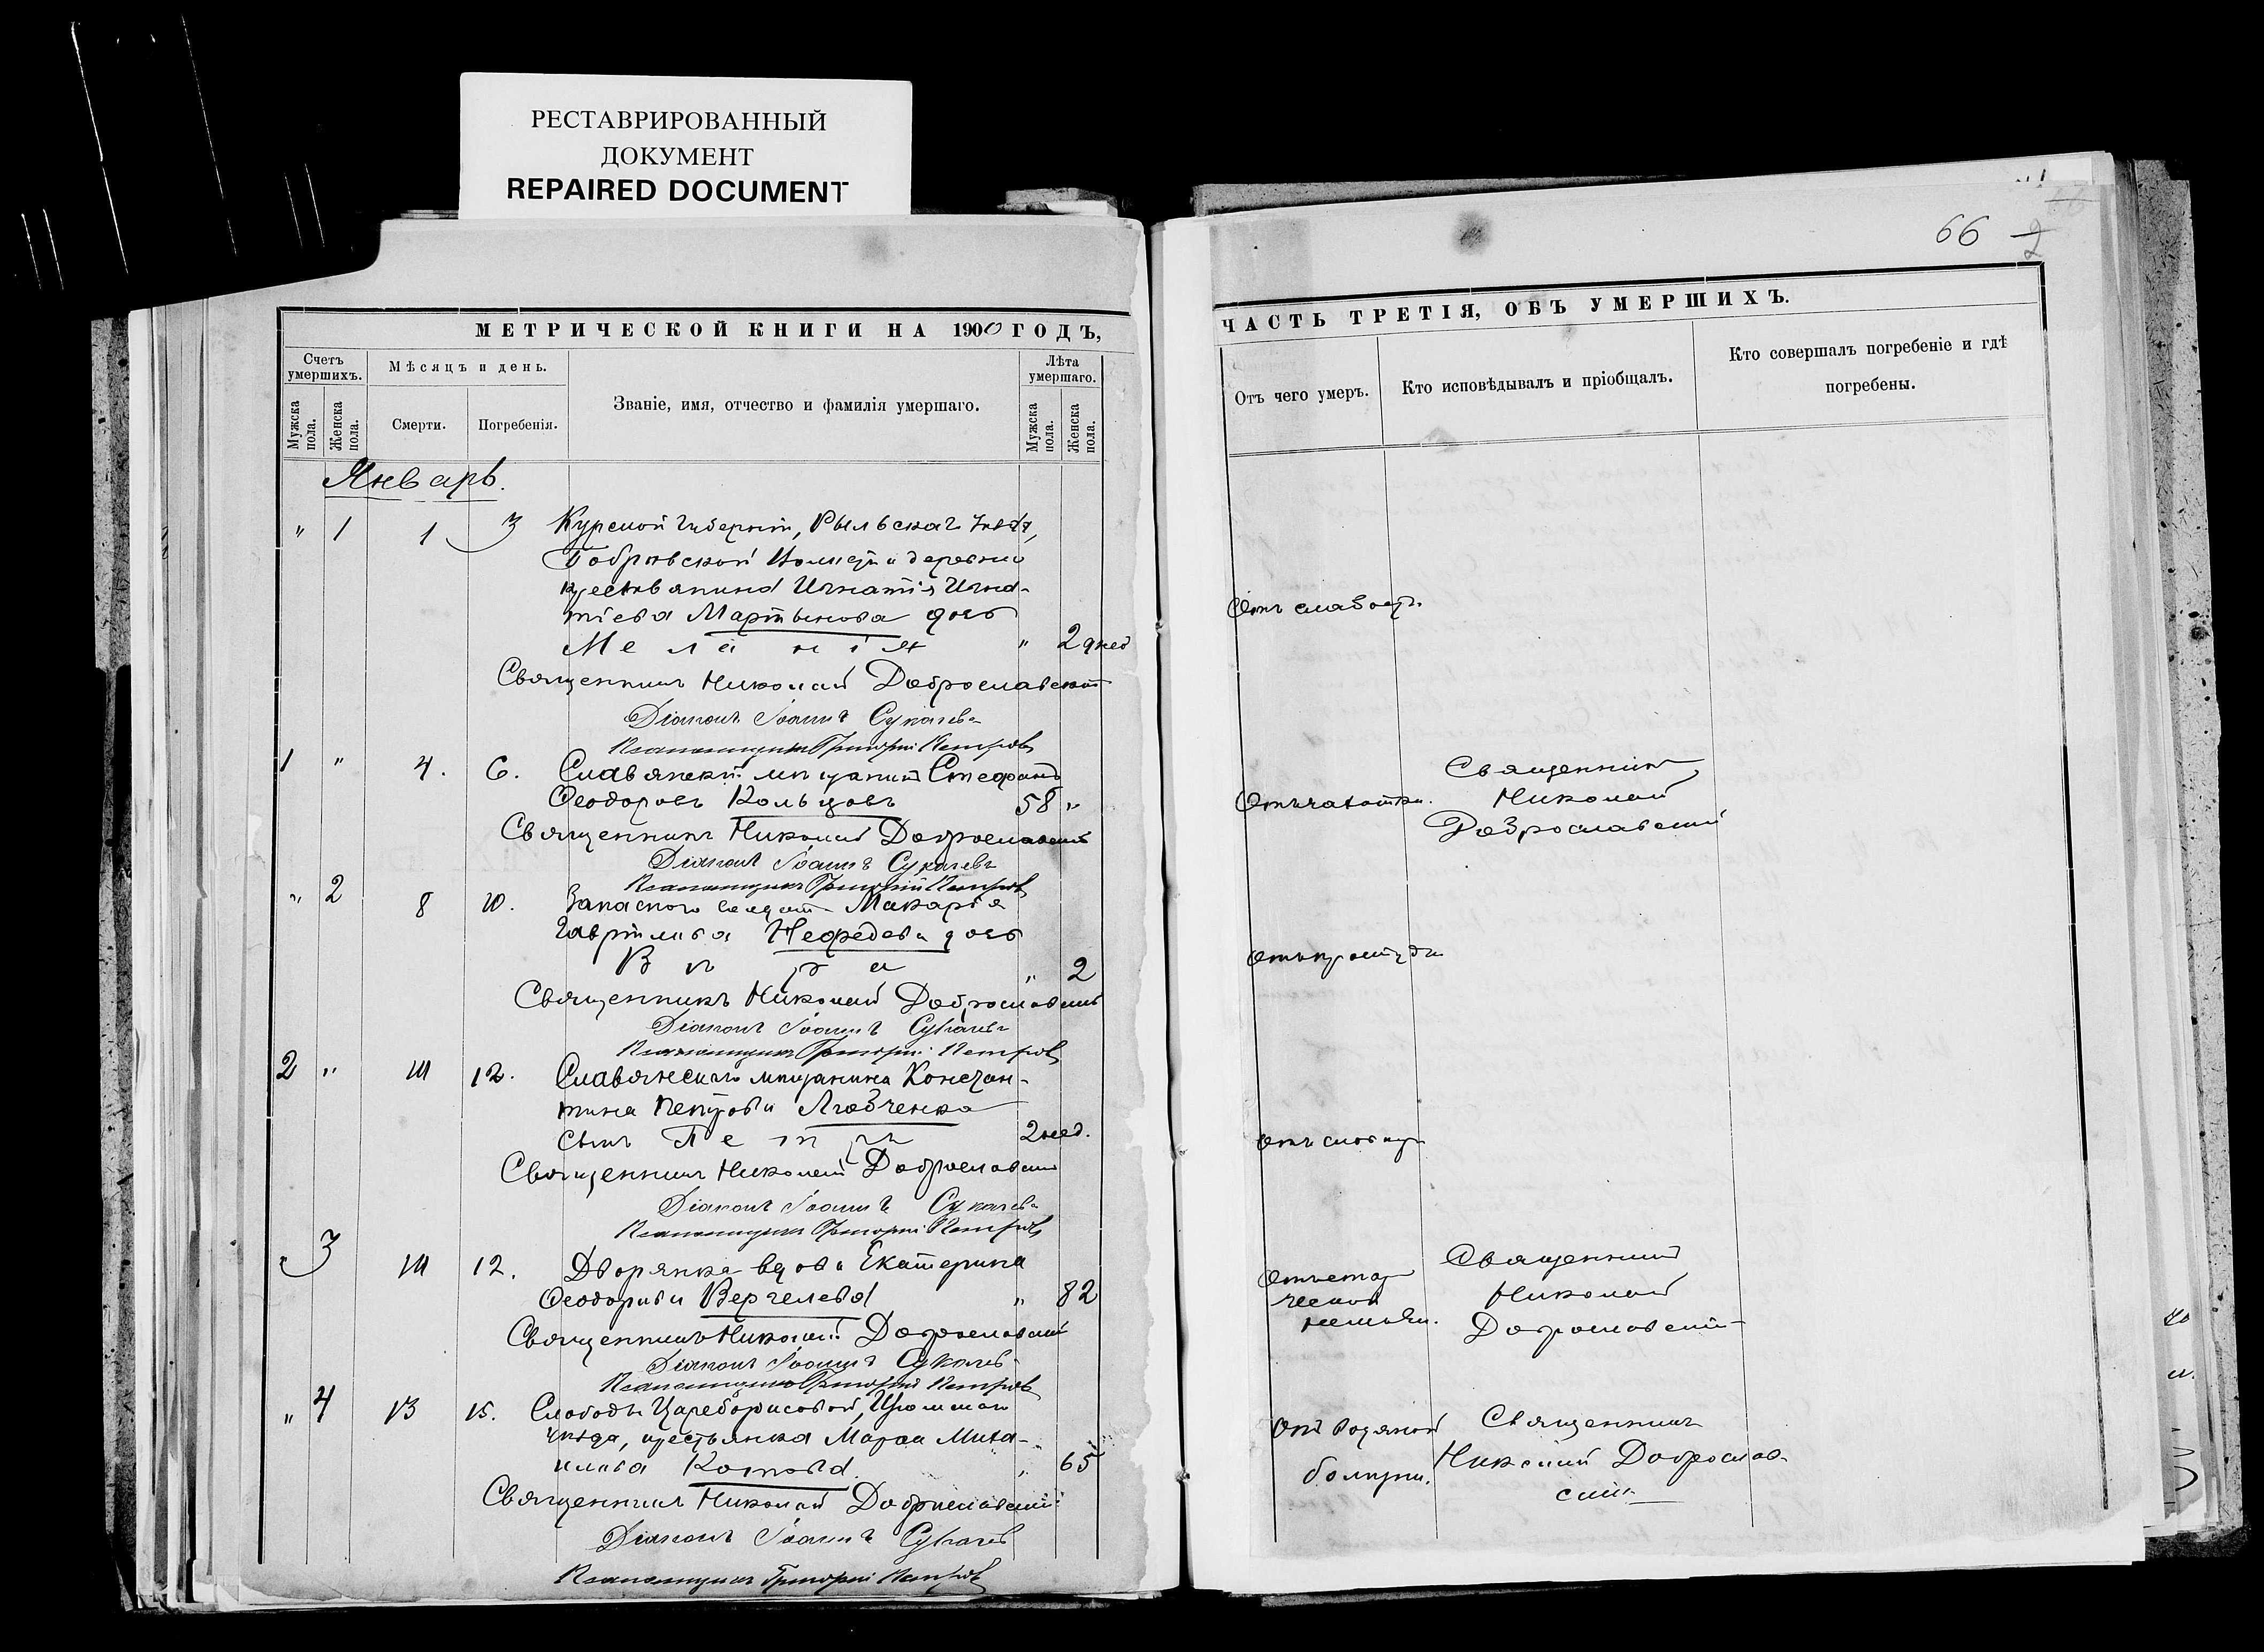 РЕСТАВРИРОВАННЫЙ
ДОКУМЕНТ
REPAIRED DOCUMENT
МЕТРИЧЕСКОЙ КНИГИ НА 1900 ГОДЪ,
Счетъ умершихъ.
Мѣсяцъ и день.
Званіе, имя, отчество и фамилія умершаго.
Лѣта умершаго.
Мужска пола.
Женска пола.
Смерти.
Погребенія.
Мужска пола.
Женска пола.
Январь.
" 1 1 3 Курской губерніи, Рыльскаго уѣзда,
Бобриковской волости деревни
крестьянина Игнатія Игна-
тіева Мартынова дочь
Меланія " 2 дней
Священникъ Николай Доброславскій
Діаконъ Іоаннъ Сукачевъ
Псаломщикъ Григорій Петровъ
1 " 4. 6. Славянскій мѣщанинъ Стефанъ
Феодоровъ Кольцовъ 58 "
Священникъ Николай Доброславскій
Діаконъ Іоаннъ Сукачевъ
Псаломщикъ Григорій Петровъ
" 2 8 10. Запаснаго солдата Макарія
Гаврилова Нефедова дочь
Вѣра " 2
Священникъ Николай Доброславскій
Діаконъ Іоаннъ Сукачевъ
Псаломщикъ Григорій Петровъ
2 " 10 12. Славянскаго мѣщанина Констан-
тина Петрова Лговченко
сынъ Петръ 2 нед.
Священникъ Николай Доброславскій
Діаконъ Іоаннъ Сукачевъ
Псаломщикъ Григорій Петровъ
" 3 10 12. Дворянка вдова Екатерина
Феодорова Верчелева " 82
Священникъ Николай Доброславскій
Діаконъ Іоаннъ Сукачевъ
Псаломщикъ Григорій Петровъ
" 4 13 15. Слободы Цареборисовой, Изюмскаго
уѣзда, крестьянка Марѳа Миха-
илова Котова " 65
Священникъ Николай Доброславскій
Діаконъ Іоаннъ Сукачевъ
Псаломщикъ Григорій Петровъ
66
2
ЧАСТЬ ТРЕТІЯ, ОБЪ УМЕРШИХЪ.
Отъ чего умеръ.
Кто исповѣдывалъ и пріобщалъ.
Кто совершалъ погребеніе и гдѣ погребены.
Отъ слабости.
Отъ чахотки.
Священникъ
Николай
Доброславскій
Отъ простуды
Отъ слабости
Отъ стар
ческой
немощи.
Священникъ
Николай
Доброславскій
Отъ водяной
болѣзни.
Священникъ
Николай Доброслав-
скій